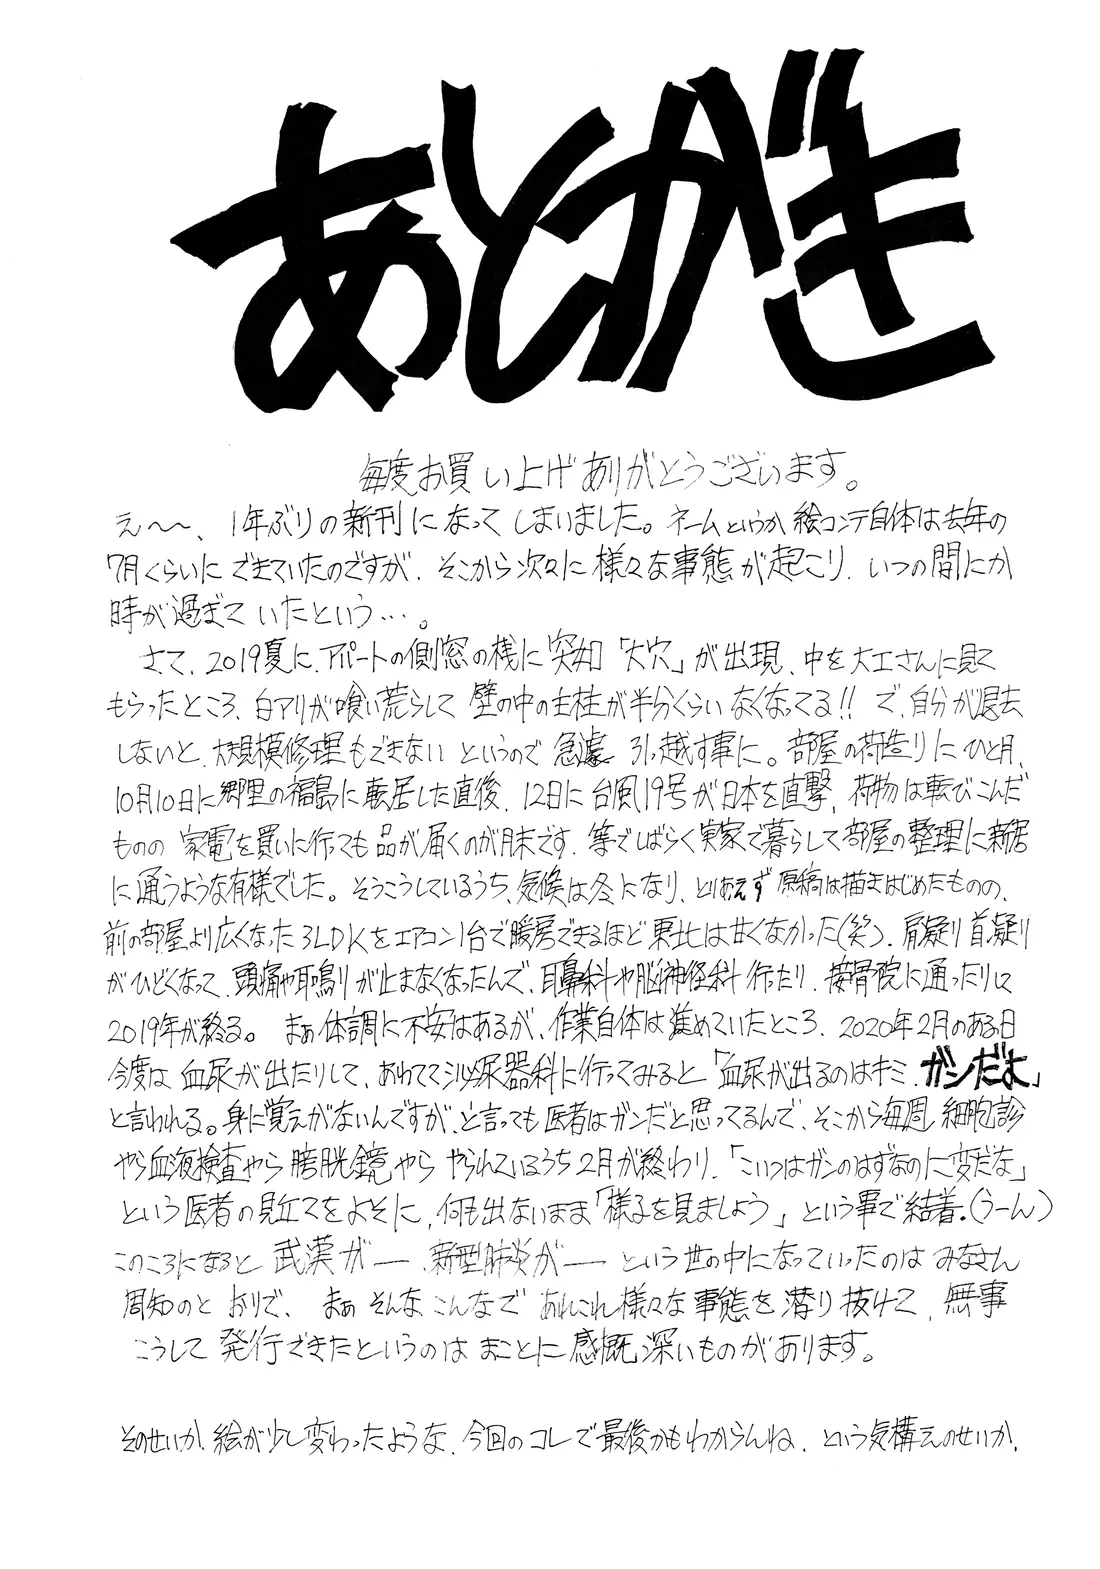 あとがき
毎度お買い上げありがとうございます。
え〜〜、1年ぶりの新刊になってしまいました。ネームというか絵コンテ自体は去年の
7月くらいにできていたのですが、そこから次々に様々な事態が起こり、いつの間にか
時が過ぎていたという…。
さて、2019夏に、アパートの側窓の桟に突如「大穴」が出現、中を大工さんに見て
もらったところ、白アリが喰い荒らして壁の中の主柱が半分くらいなくなってる!!で、自分が退去
しないと、大規模修理もできないというので急遽引っ越す事に。部屋の荷造りにひと月、
10月10日に郷里の福島に転居した直後、12日に台風19号が日本を直撃、荷物は転びこんだ
ものの家電を買いに行っても品が届くのが月末です、等でしばらく実家で暮らして部屋の整理に新居
に通うような有様でした。そうこうしているうち、気候は冬になり、とりあえず原稿は描きはじめたものの、
前の部屋より広くなった3LDKをエアコン1台で暖房できるほど東北は甘くなかった(笑)、肩凝り首凝り
がひどくなって、頭痛や耳鳴りが止まなくなったんで、耳鼻科や脳神経科行ったり、接骨院に通ったりして
2019年が終る。まぁ体調に不安はあるが、作業自体は進めていたところ、2020年2月のある日
今度は血尿が出たりして、あわてて泌尿器科に行ってみると「血尿が出るのはキミ、ガンだよ」
と言われる。身に覚えがないんですが、と言っても医者はガンだと思ってるんで、そこから毎週細胞診
やら血液検査やら膀胱鏡やらやられているうち2月が終わり、「こいつはガンのはずなのに変だな」
という医者の見立てをよそに、何も出ないまま「様子を見ましょう」という事で結着。(うーん)
このころになると武漢が──、新型肺炎が──という世の中になっていったのはみなさん
周知のとおりで、まぁそんなこんなであれこれ様々な事態を潜り抜けて、無事
こうして発行できたというのはまことに感慨深いものがあります。
そのせいか、絵が少し変わったような、今回のコレで最後かもわからんね、という気構えのせいか、